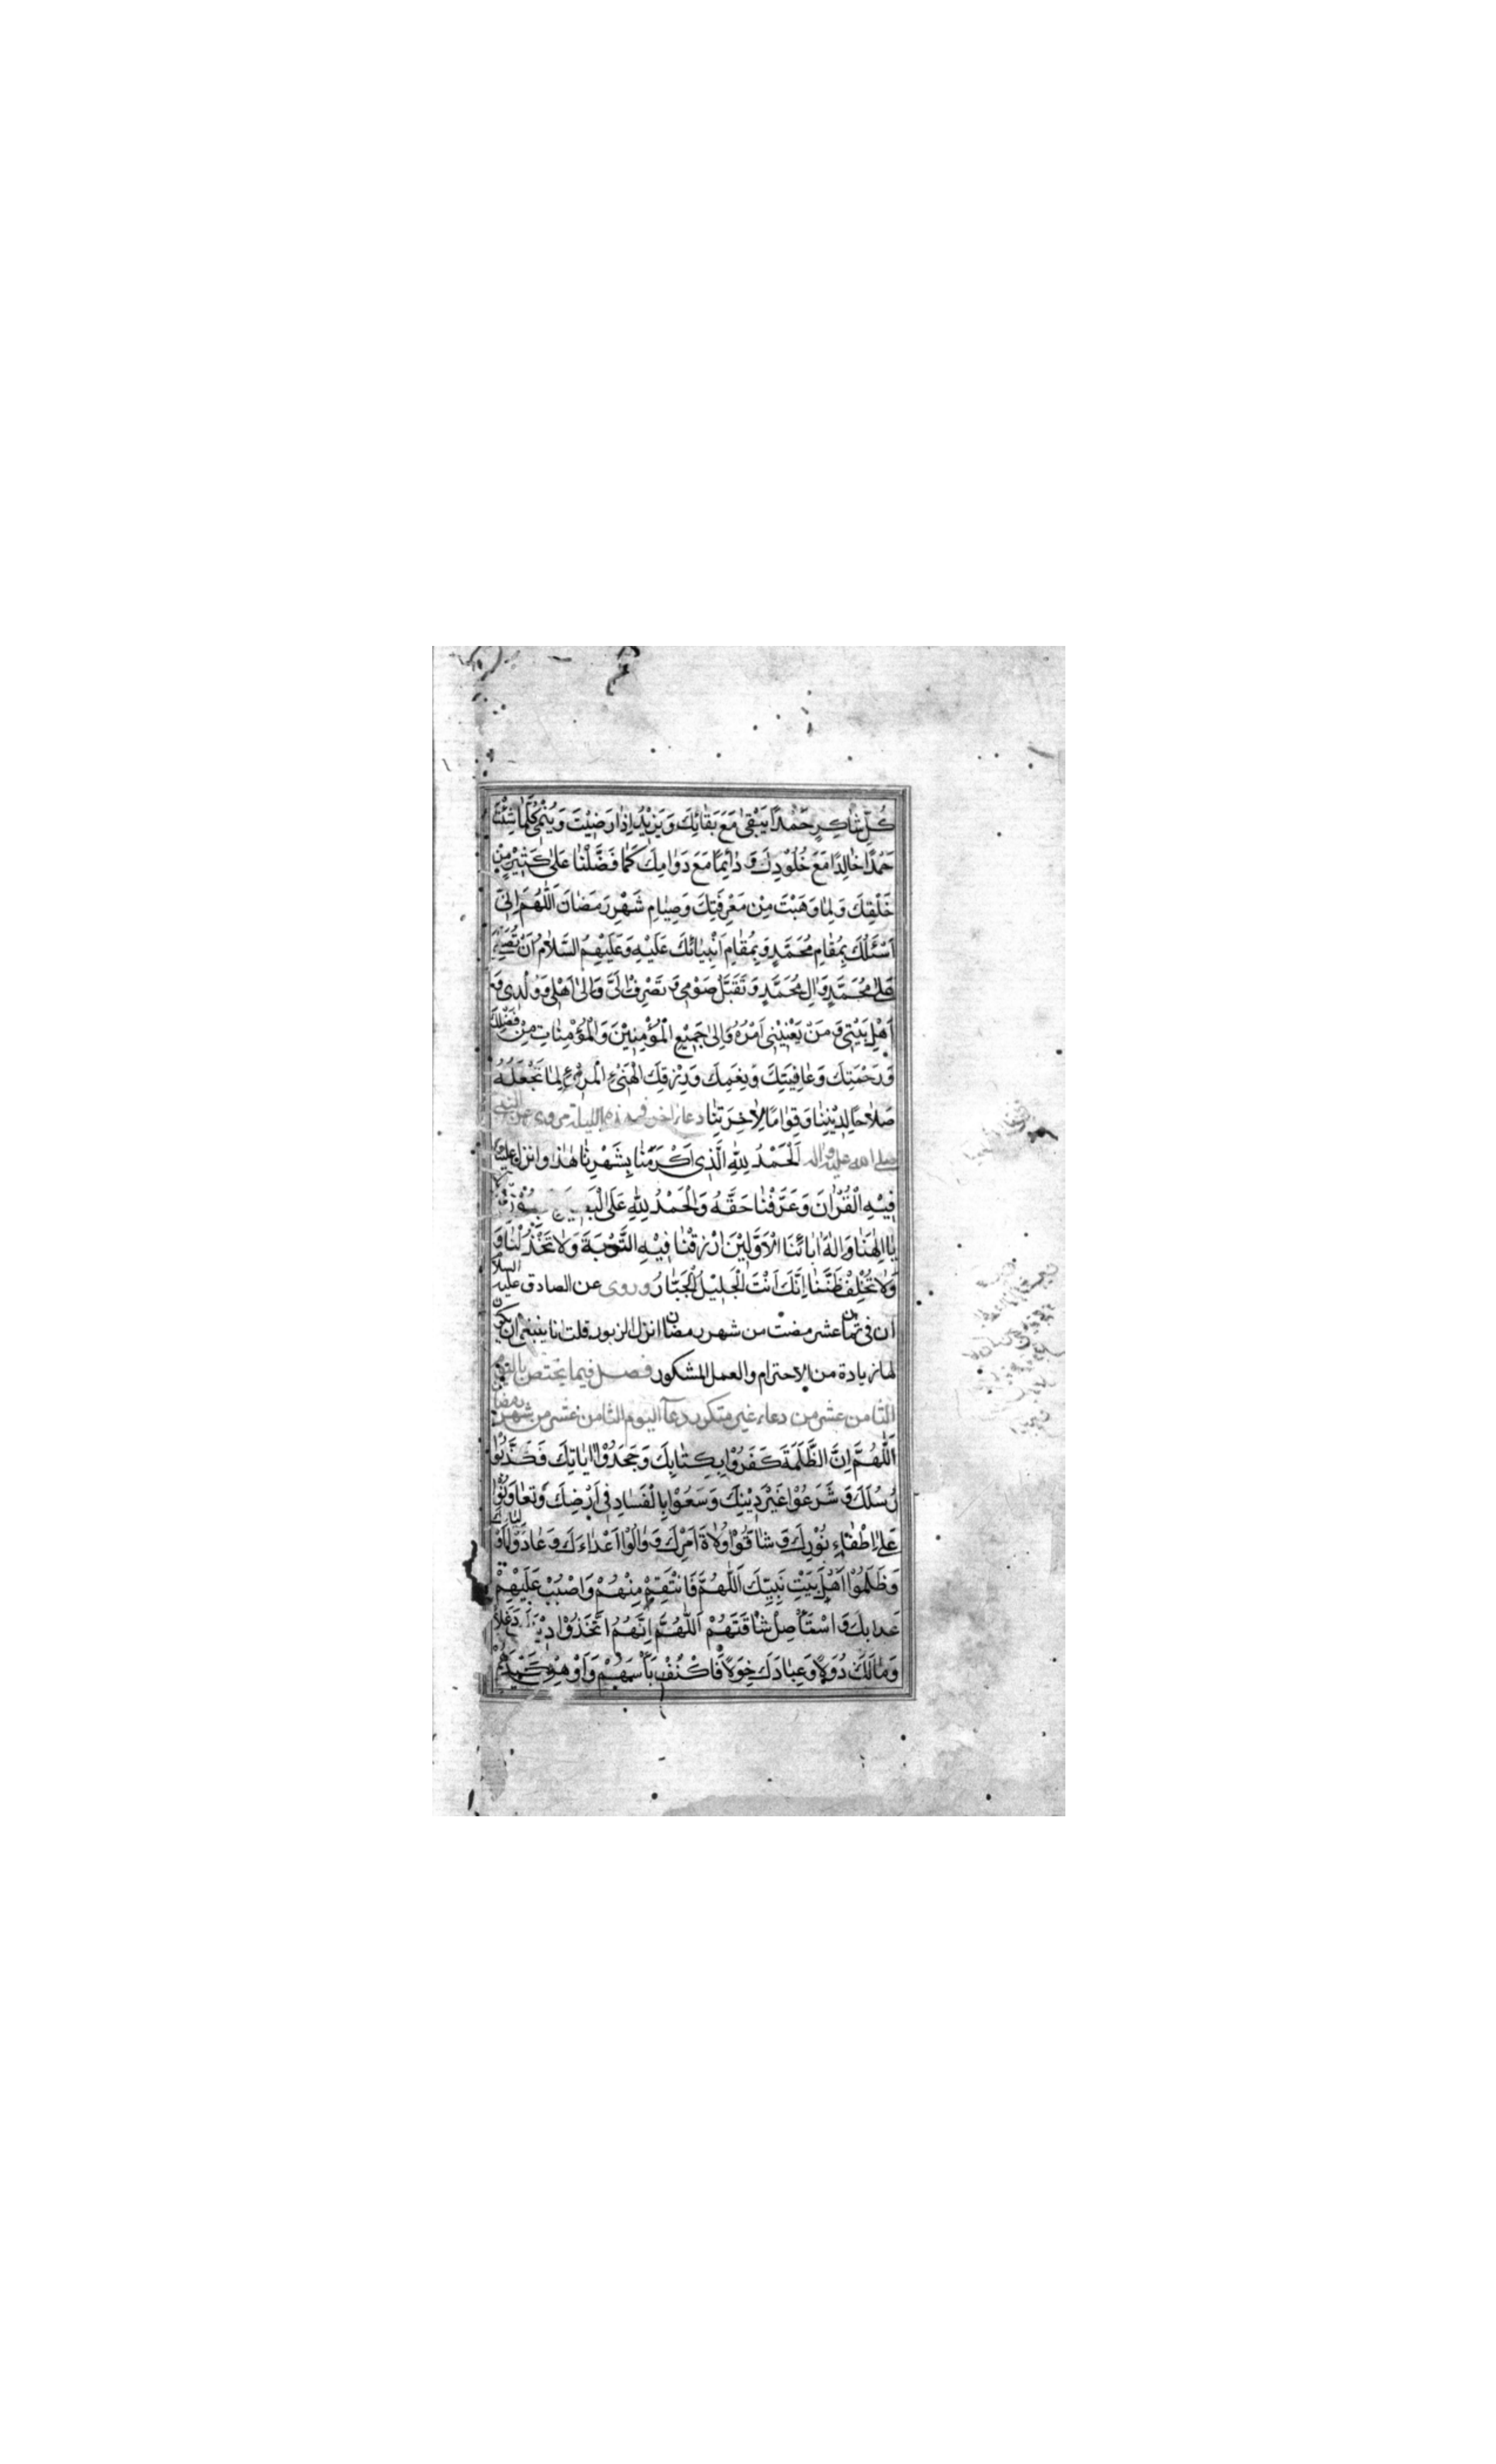 كُلِّ شٰاكِرٍ حَمْدًا يَبْقىٰ مَعَ بَقٰائِكَ وَيَزِيْدُ اِذٰا رَضِيْتَ وَيُنْمىٰ كُلَّمٰا شِئْتَ
حَمْدًا خٰالِدًا مَعَ خُلُوْدِكَ وَ دٰائِمًا مَعَ دَوٰامِكَ كَمٰا فَضَّلْتَنٰا عَلىٰ كَثِيْرٍ مِنْ
خَلْقِكَ وَلِمٰا وَهَبْتَ مِنْ مَعْرِفَتِكَ وَصِيٰامِ شَهْرِ رَمَضٰانَ اَللّٰهُمَّ اِنّىٖ
اَسْئَلُكَ بِمُقٰامِ مُحَمَّدٍ وَبِمُقٰامِ اَنْبِيٰائِكَ عَلَيْهِ وَعَلَيْهِمُ السَّلٰامُ اَنْ تُصَلِّىَ
عَلىٰ مُحَمَّدٍ وَاٰلِ مُحَمَّدٍ وَتَقَبَّلْ صَوْمِى وَ تَصْرِفْ اِلَىَّ وَاِلىٰ اَهْلِى وَوُلْدِى وَ
اَهْلِ بَيْتِى وَمَنْ يَعْنِيْنِى اَمْرُهُ وَاِلىٰ جَمِيْعِ الْمُؤْمِنِيْنَ وَالْمُؤْمِنٰاتِ مِنْ فَضْلِكَ
وَرَحْمَتِكَ وَعٰافِيَتِكَ وَنِعَمِكَ وَرِزْقِكَ الْهَنِىْءِ الْمَرِىْءِ لِمٰا تَجْعَلُهُ
صَلٰاحًا لِدِيْنِنٰا وَقِوٰامًا لِاٰخِرَتِنٰا دعاء اخر فى هذه الليلة مروى عن النبى
صلى الله عليه واله اَلْحَمْدُ لِلّٰهِ الَّذِى اَكْرَمَنٰا بِشَهْرِنٰا هٰذٰا وَانزل علينا
فِيْهِ الْقُرْاٰنَ وَعَرَّفْنٰا حَقَّهُ وَالْحَمْدُ لِلّٰهِ عَلَى الْبَصِيْرَةِ
يٰا اِلٰهَنٰا وَاِلٰهَ اٰبٰائِنَا الْاَوَّلِيْنَ ارْزُقْنٰا فِيْهِ التَّوْبَةَ وَلٰا تَخْذُلْنٰا وَ
وَلٰا تُخْلِفْ ظَنَّنٰا اِنَّكَ اَنْتَ الْجَلِيْلُ الْجَبّٰارُ وروى عن الصادق عليه السلا
ان فى ثمان عشر مضت من شهر رمضان انزل الزبور قلت انا ينبغى ان يكون
لها زيادة من الاحترام والعمل المشكور فصل فيما يختص باليوم
الثامن عشر من دعاء غير متكرر دعآ اليوم الثامن عشر من شهر رمضان
اَللّٰهُمَّ اِنَّ الظَّلَمَةَ كَفَرُوْا بِكِتٰابِكَ وَجَحَدُوْا اٰيٰاتِكَ فَكَذَّبُوْا
رُسُلَكَ وَ شَرَعُوْا غَيْرَ دِيْنِكَ وَسَعَوْا بِالْفَسٰادِ فِى اَرْضِكَ وَتَعٰاوَنُوْا
عَلىٰ اِطْفٰاءِ نُوْرِكَ وَ شٰاقُّوْا وُلٰاةَ اَمْرِكَ وَ وٰالَوْا اَعْدٰاءَكَ وَعٰادَوْا اَوْلِيٰاءَكَ
وَظَلَمُوْا اَهْلَ بَيْتِ نَبِيِّكَ اَللّٰهُمَّ فَانْتَقِمْ مِنْهُمْ وَاصْبُبْ عَلَيْهِمْ
عَذٰابَكَ وَ اسْتَأْصِلْ شٰاقَتَهُمْ اَللّٰهُمَّ اِنَّهُمُ اتَّخَذُوْا دِيْنَكَ دَغَلًا
وَمٰالَكَ دُوَلًا وَعِبٰادَكَ خِوَلًا فَاكْفُفْ بَأْسَهُمْ وَاَوْهِنْ كَيْدَهُمْ